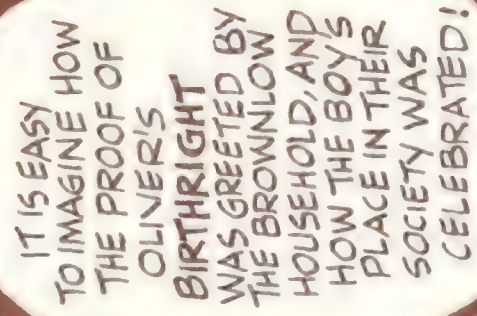 IT IS EASY
TO IMAGINE HOW
THE PROOF OF
OLIVER'S
BIRTHRIGHT
WAS GREETED BY
THE BROWNLOW
HOUSEHOLD, AND
HOW THE BOY'S
PLACE IN THEIR
SOCIETY WAS
CELEBRATED!